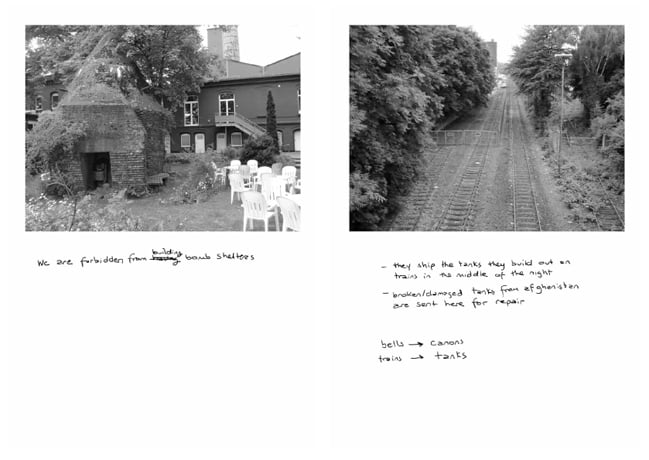 We are forbidden from building bomb shelters
- they ship the tanks they build out on
trains in the middle of the night
- broken/damaged tanks from afghanistan
are sent here for repair
bells → canons
trains → tanks